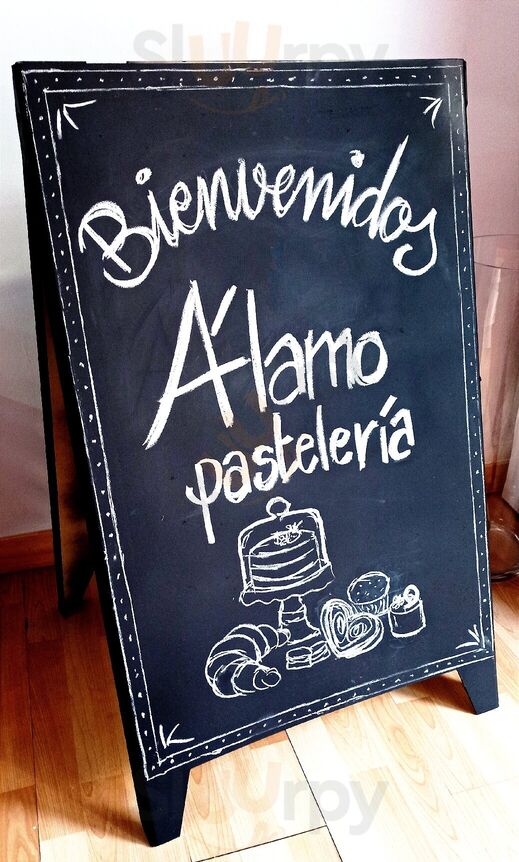 Slurpy
Bienvenidos
Álamo
pastelería
Slurpy